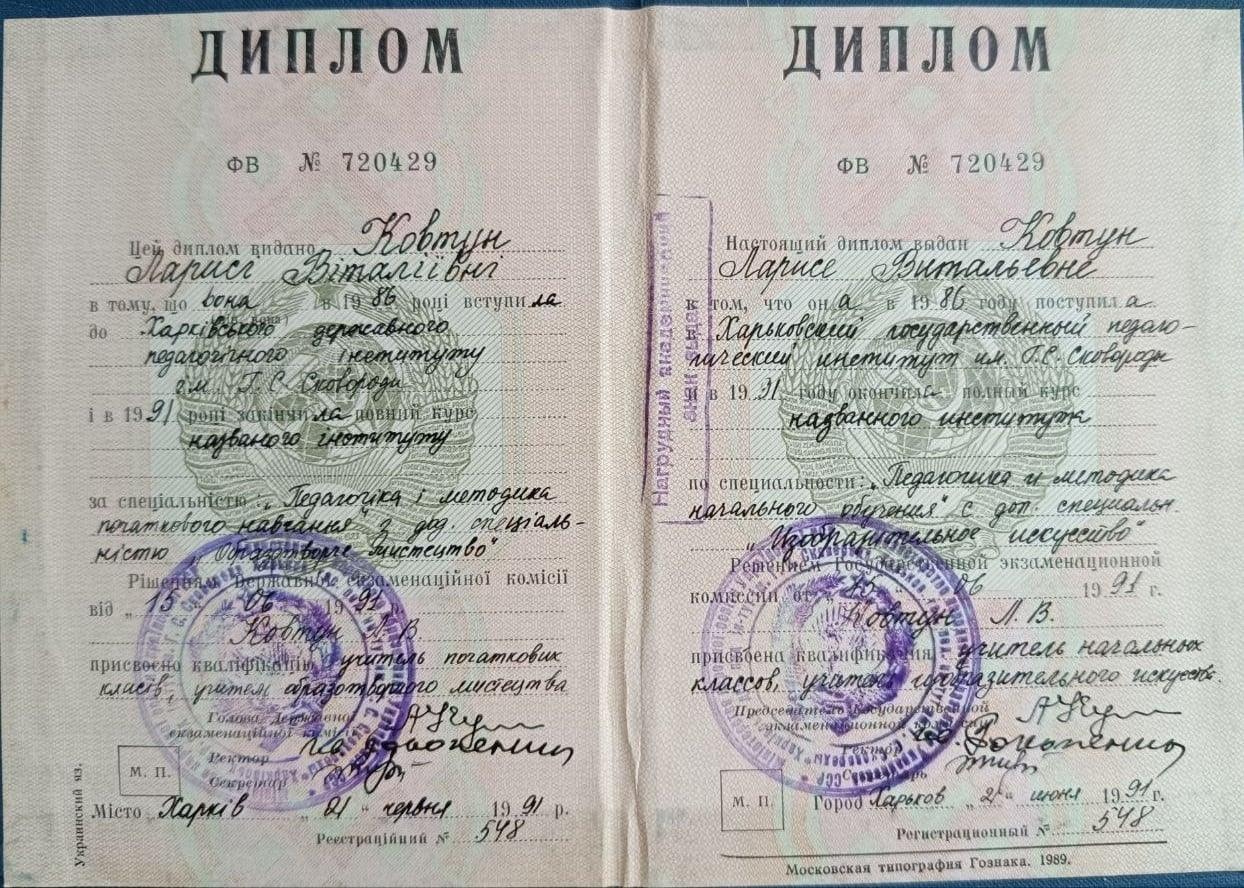 ДИПЛОМ
ФВ № 720429
Цей диплом видано Ковтун
Ларисі Віталіївні
в тому, що вона в 1986 році вступила
до Харківського державного
педагогічного інституту
ім. Г. С. Сковороди
і в 1991 році закінчила повний курс
названого інституту
за спеціальністю: „Педагогіка і методика
початкового навчання" з дод. спеціаль-
ністю „Образотворче мистецтво"
Рішенням Державної екзаменаційної комісії
від „15" 06 1991 р.
Ковтун Л. В.
присвоєно кваліфікацію учитель початкових
класів, учитель образотворчого мистецтва
Голова Державної
екзаменаційної комісії
Ректор
Секретар
М. П.
Місто Харків „21" червня 1991 р.
Реєстраційний № 548
Украинский яз.
Нагрудный академический
знак выдан
ДИПЛОМ
ФВ № 720429
Настоящий диплом выдан Ковтун
Ларисе Витальевне
в том, что она в 1986 году поступила
в Харьковский государственный педаго-
гический институт им. Г. С. Сковороды
и в 1991 году окончила полный курс
названного института
по специальности: „Педагогика и методика
начального обучения" с доп. специальн.
„Изобразительное искусство"
Решением Государственной экзаменационной
комиссии от „15" 06 1991 г.
Ковтун Л. В.
присвоена квалификация учитель начальных
классов, учитель изобразительного искусств.
Председатель Государственной
экзаменационной комиссии
Ректор
Секретарь
М. П.
Город Харьков „21" июня 1991 г.
Регистрационный № 548
Московская типография Гознака. 1989.